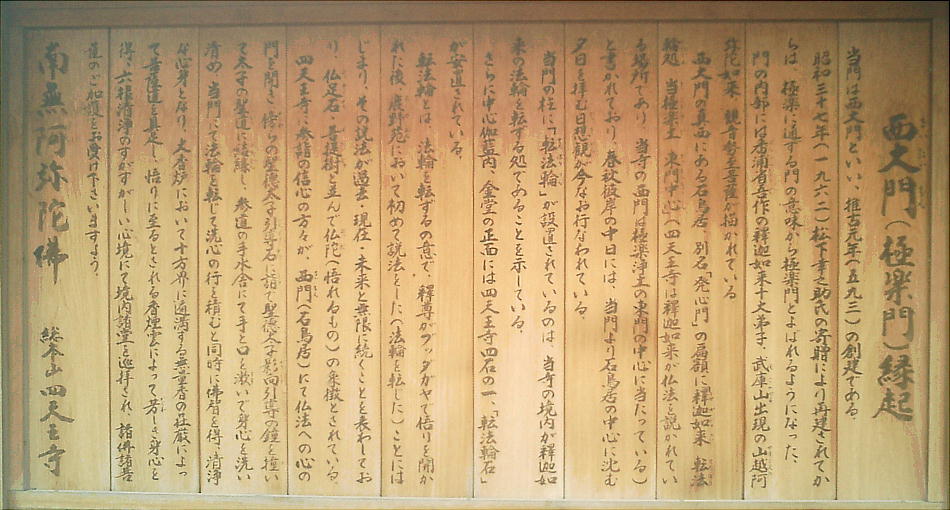 西大門(極楽門)縁起
当門は西大門といい、推古元年(五九三)の創建である。
昭和三十七年(一九六二)松下幸之助氏の寄贈により再建されてか
らは、極楽に通ずる門の意味から極楽門とよばれるようになった、
門の内部には杳浦省吾作の釋迦如来十大弟子、武庫山出現の山越阿
弥陀如来、観音勢至菩薩が描かれている
西大門の真面にある石鳥居、別名「発心門」の扁額に「釋迦如来 転法
輪処 当極楽土 東門中心」(四天王寺は釋迦如来が仏法を説かれてい
る場所であり 当寺の西門は極楽浄土の東門の中心に当たっている)
と書かれており 春秋彼岸の中日には、当門より石鳥居の中心に沈む
夕日を拝む日想観が今なお行なわれている。
当門の柱に「転法輪」が設置されているのは、当寺の境内が釋迦如
来の法輪を転ずる処であることを示している。
さらに中心伽藍内、金堂の正面には四天王寺四石の一、「転法輪石」
が安置されている。
転法輪とは、法輪を転ずるの意で、釋尊がブッダガヤで悟りを開か
れた後、鹿野苑において初めて説法をした(法輪を転じた)ことには
じまり、その説法が過去・現在・未来と無限に続くことを表わしてお
り、仏足石・菩提樹と並んで仏陀(悟れるもの)の象徴とされている。
四天王寺に参詣の信心の方々が、西門(石鳥居)にて仏法への心の
門を開き、傍らの聖徳太子引導石に詣で聖徳太子影向引導の鐘を撞い
て太子の聖霊に結縁し、参道の手水舎にて手と口を漱いで身心を洗い
清め、当門にて法輪を転じ洗心の行を積むと同時に佛智を得、清浄
な心身となり、大香炉において十方界に遍満する無量香の荘厳によっ
て菩薩道を具足し、悟りに至るとされる香煙雲によって芳しき身心を
得、六根清浄のすがすがしい心境にて境内諸堂を巡拝され、諸佛諸菩
薩のご加護をお受け下さいますよう。
南無阿弥陀佛 総本山四天王寺